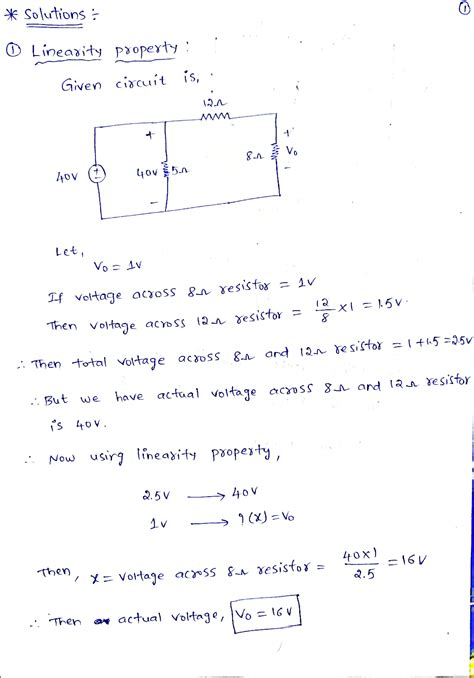 ①
* Solutions :-
① Linearity property :
Given circuit is,
12Ω
+ +
40V 40V 5Ω 8Ω V₀
- -
Let,
V₀ = 1V
If voltage across 8Ω resistor = 1V
Then voltage across 12Ω resistor = 12/8 × 1 = 1.5V.
∴ Then total voltage across 8Ω and 12Ω resistor = 1+1.5=2.5V
∴ But we have actual voltage across 8Ω and 12Ω resistor
is 40V.
∴ Now using linearity property,
2.5V ⟶ 40V
1V ⟶ ?(x)=V₀
Then, x = voltage across 8Ω resistor = 40×1/2.5 = 16V
∴ Then actual voltage, V₀ = 16V